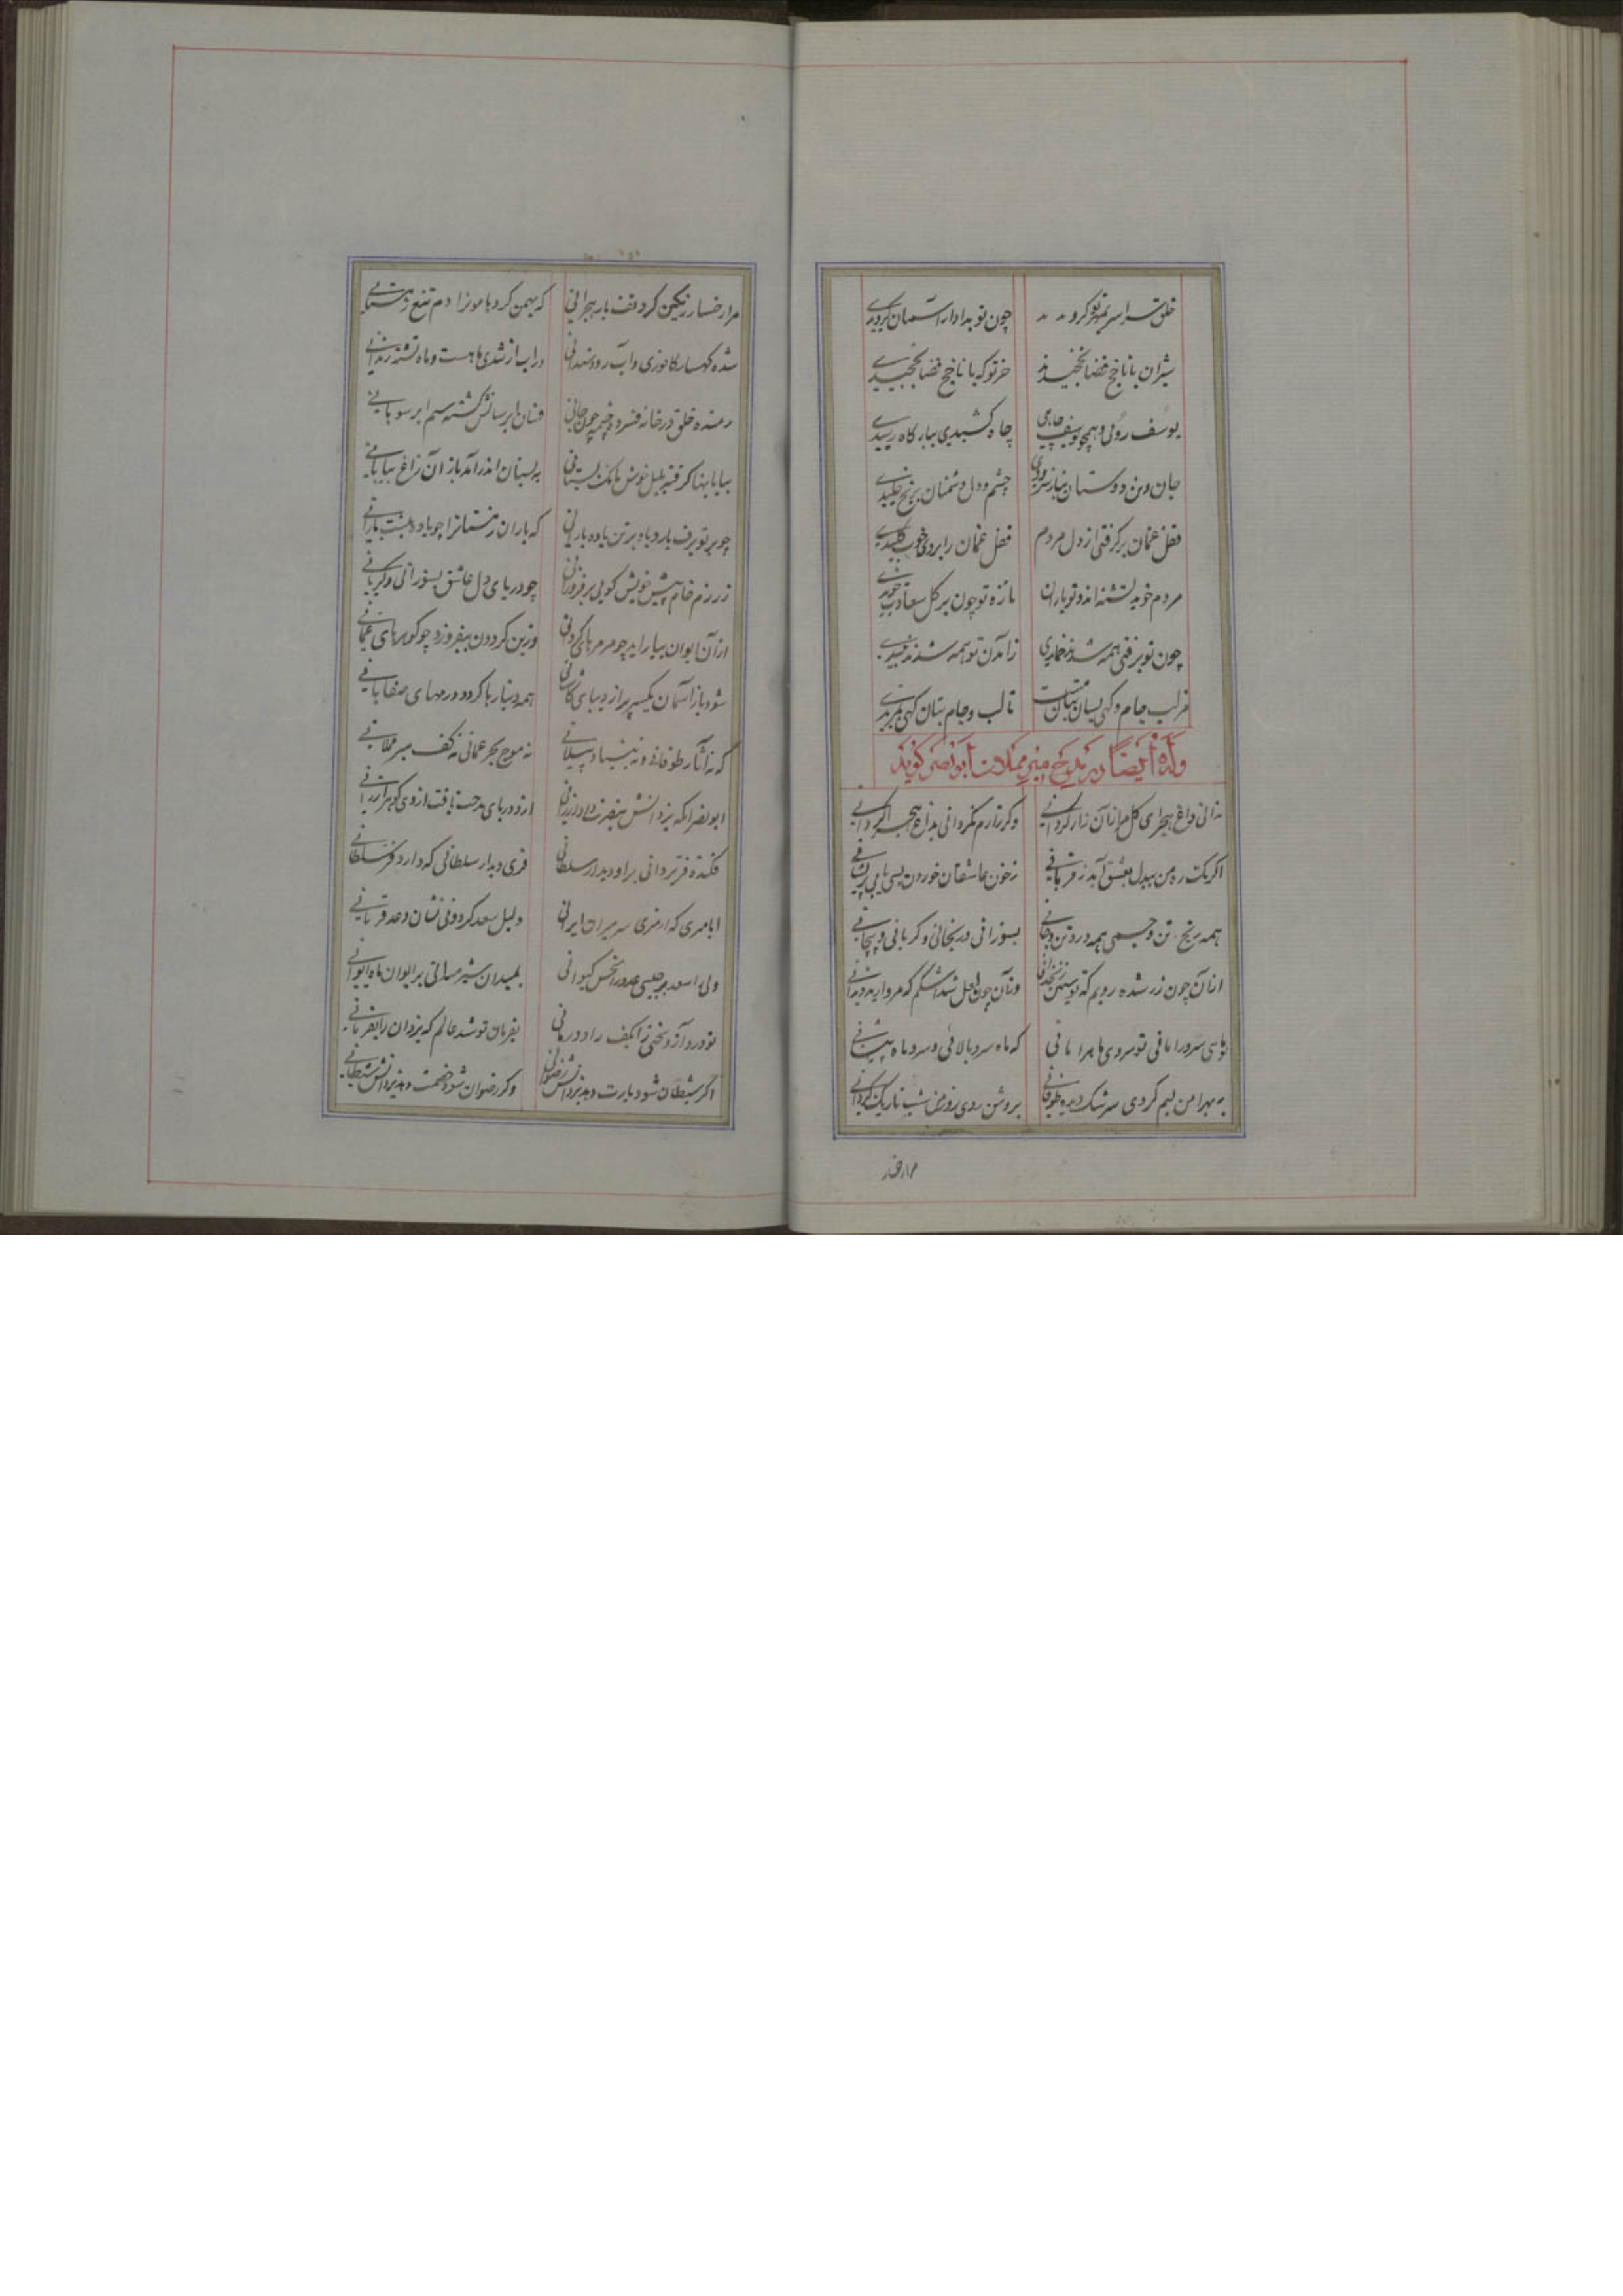 خلق سراسر بمهر تو کرو ند چون تو بداد ار آسمان کرویدی
شیران با ناخج قضا نخجیدند خر تو که با ناخج قضا نخجیدی
یوسف روئی و همچو یوسف چاهی چاه کشیدی ببارکاه رسیدی
جان و تن دوستان بناز چشم و دل دشمنان برنج خلیدی
قفل غمان برکرفتی از دل مردم قفل غمان را بروی خوب کلیدی
مردم خوید تشنه اند و تو باران تازه تو چون برکل سعادت خویدی
چون تو برفتی همه شدند خماری زآمدن تو همه شدند نبیدی
لب جام و کهی لبان بتان تا لب و جام بتان کهی
وله ایضا در مدح میر مملان ابونصر کوید
وکر زارم نکردانی بداغ هجر
اکر یک ره من بیدل بعشق آیم ز قربانی ز خون عاشقان خوردن بسی یابی پشیمانی
همه رنج تن و جسمی همه درد تن و جانی بسوزانی و رنجانی و کریانی و پیچانی
ازان چون زر شده رویم که تو سیمین زنخدانی وزان چون لعل شد اشکم که مروارید دندانی
تو ماهی سرو را مانی تو سروی ماه را مانی که ماه سرو بالائی و سرو ماه پیشانی
کردی سرشک دیده طوفانی بروشن روی روز من شب تاریک کردانی
مرا رخسار
مرا رخسار رنکین کرد تف بار هجرانی که بهمن کرد هامونرا دم تیغ زمستانی
شده کهسار کافوری و آب رود سندانی
رمنده خلق در خانه فسرده خیمه چون فسان ابر سانش کشته سیم ابر سوهانی
بیابانها کرفته بلبل خوش بانک بستانی به بستان اندر آمد باز آن زاغ بیابانی
چو بر تو برف بارد باد بر تن باده بارانی که باران زمستانرا چو باده نیست بارانی
ز رزم خام پیش خویش کوهی بر فروزانی چو دریای دل عاشق بسوزانی و کریانی
ازآن ایوان بیاراید چو مرمرهای کرمانی وزین کردون بیفروزد چو کوهرهای عمانی
شود باز آسمان یکسر پر از دیبای کاشانی همه دینارها کردد درمهای صفاهانی
که نه آثار طوفانی و نه بنیاد سیلانی نه موج بحر عمانی نه کف میر مملانی
ابونصر آنکه یزدانش بنصرت داد ارزانی ازو دریای مدحت یافت
فکنده فر یزدانی براو دیدار سلطانی فری دیدار سلطانی که دارد فر سلطانی
ایا میری که از میری سر میران ایرانی دلیل سعد کردونی نشان وعد قرآنی
ولی را سعد برجیسی عدو را نحس کیوانی بمیدان شیر میدانی بر ایوان ماه ایوانی
تو درد آز و سختی را بکف راد درمانی بفرمان تو شد عالم که یزدان را بفرمانی
اکر شیطان شود یارت دهد یزدانش رضوانی وکر رضوان شود خصمت دهد یزدانش شیطانی